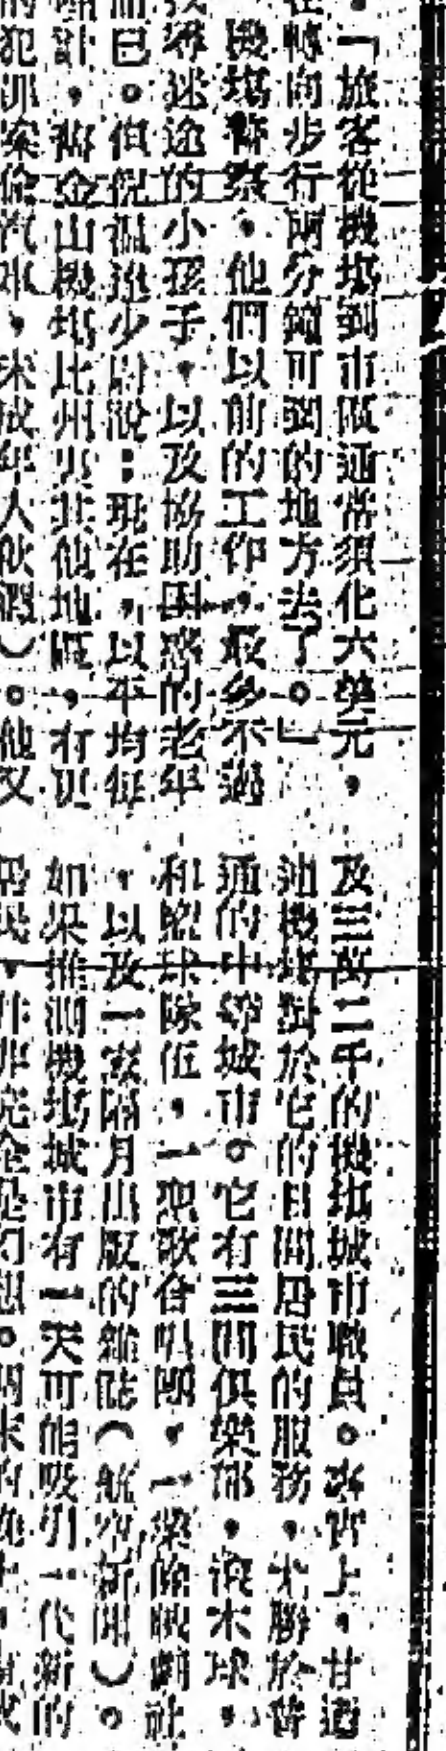 。「旅客從機場到市區通常須化六美元，
在轉向步行兩分鐘可到的地方去了。」
機場警察，他們以前的工作，最多不過
找尋迷途的小孩子，以及協助困惑的老年
而已。但倪溫遜少尉說：現在，以平均每
計，舊金山機場比州內其他地區，有更
的犯罪案偷汽車，未成年人飲酒）。他又
及三萬二千的機場城市職員。事實上，甘迺
迪機場對於它的日間居民的服務，尤勝於普
通的中等城市。它有三間俱樂部，滾木球，
和壘球隊伍，一環歌合唱團，一業餘戲劇社
，以及一家隔月出版的雜誌（航空新聞）。
如果推測機場城市有一天可能吸引一代新的
居民，並非完全是幻想。周末的晚上，